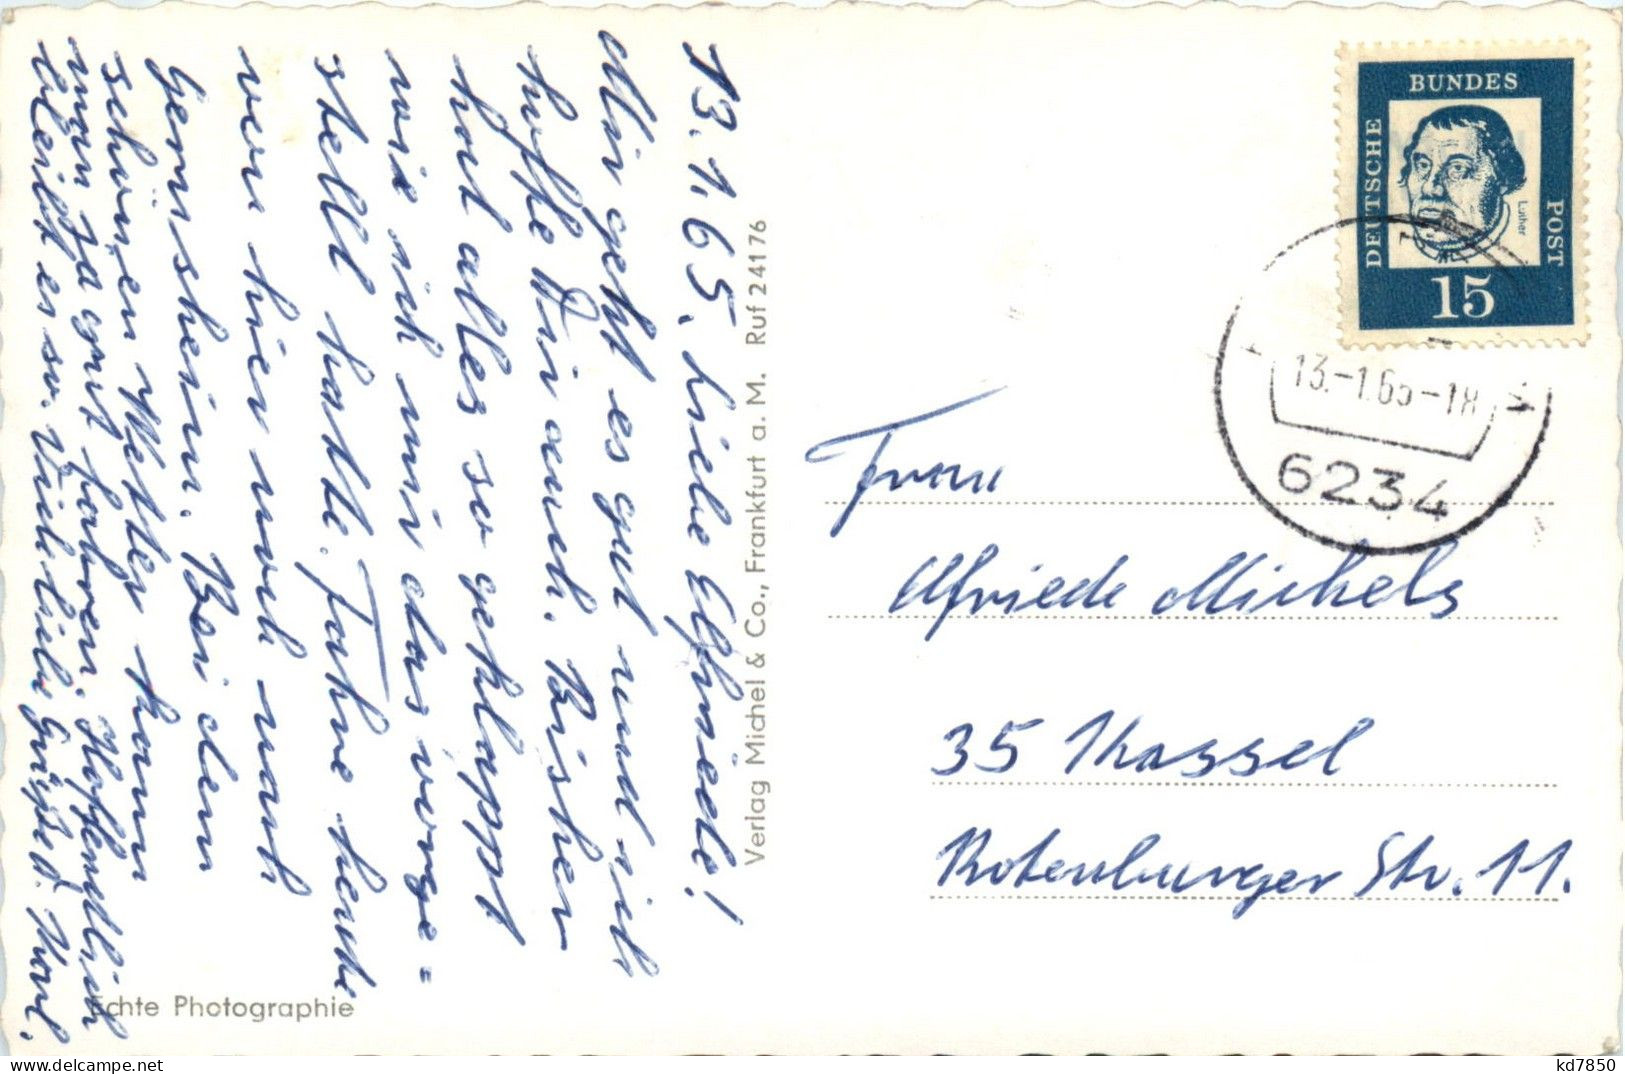 13.1.65. Liebe Elfriede!
Mir geht es gut und ich
hoffe Dir auch. Bisher
hat alles so geklappt
wie ich mir das vorge=
stellt hatte. Fahre heute
von hier noch nach
Gernsheim. Bei dem
schönen Wetter kann
man ja gut fahren. Hoffendlich
bleibt es so. Viele liebe Grüße d. Karl.
Echte Photographie
Verlag Michel & Co., Frankfurt a. M. Ruf 24176
DEUTSCHE
BUNDES
POST
Luther
15
13.-1.65-18
6234
Frau
Elfriede Michels
35 Kassel
Rotenburger Str. 11.
www.delcampe.net
kd7850